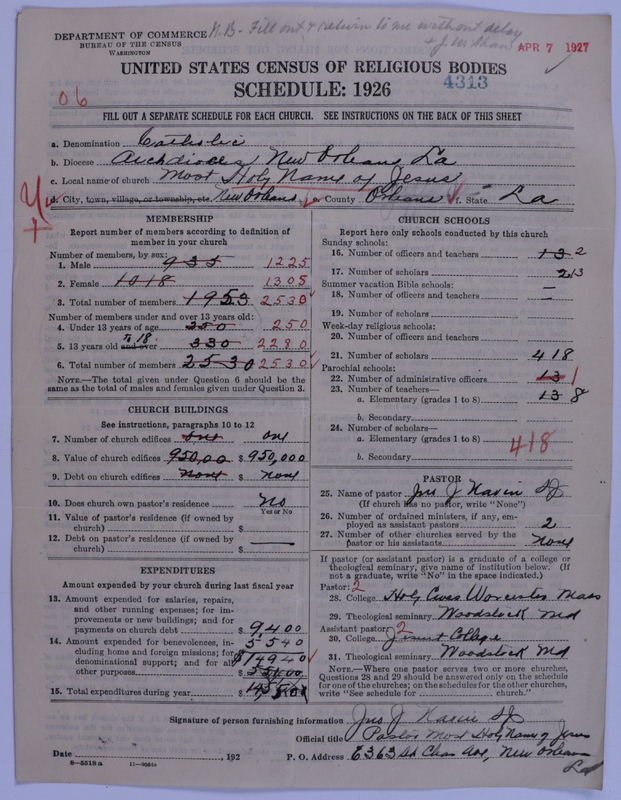 N.B- Fill out & return to me without delay
DEPARTMENT OF COMMERCE
BUREAU OF THE CENSUS
WASHINGTON
APR 7 1927
UNITED STATES CENSUS OF RELIGIOUS BODIES
SCHEDULE: 1926
4313
06
FILL OUT A SEPARATE SCHEDULE FOR EACH CHURCH. SEE INSTRUCTIONS ON THE BACK OF THIS SHEET
a. Denomination Catholic
b. Diocese Archdiocese New Orleans La
c. Local name of church Most Holy Name of Jesus
d. City, town, village, or township, etc New Orleans e. County Orleans f. State La
MEMBERSHIP
Report number of members according to definition of
member in your church
Number of members, by sex:
1. Male 935 1225
2. Female 1018 1305
3. Total number of members 1953 2530
Number of members under and over 13 years old:
4. Under 13 years of age 250 250
5. 13 years old and over To 18. 330 2280
6. Total number of members 2530 2530
NOTE.—The total given under Question 6 should be the
same as the total of males and females given under Question 3.
CHURCH BUILDINGS
See instructions, paragraphs 10 to 12
7. Number of church edifices one one
8. Value of church edifices 950,00 $ 950,000
9. Debt on church edifices none $ none
10. Does church own pastor's residence No
Yes or No
11. Value of pastor's residence (if owned by
church) $
12. Debt on pastor's residence (if owned by
church) $
EXPENDITURES
Amount expended by your church during last fiscal year
13. Amount expended for salaries, repairs,
and other running expenses; for im-
provements or new buildings; and for
payments on church debt $ 9400
14. Amount expended for benevolences, in-
cluding home and foreign missions; for
denominational support; and for all
other purposes 5540
$14940
15. Total expenditures during year $
CHURCH SCHOOLS
Report here only schools conducted by this church
Sunday schools:
16. Number of officers and teachers 13 2
17. Number of scholars 213
Summer vacation Bible schools:
18. Number of officers and teachers —
19. Number of scholars —
Week-day religious schools:
20. Number of officers and teachers
21. Number of scholars 418
Parochial schools:
22. Number of administrative officers 13 1
23. Number of teachers—
a. Elementary (grades 1 to 8) 13 8
b. Secondary
24. Number of scholars—
a. Elementary (grades 1 to 8) 418
b. Secondary
PASTOR
25. Name of pastor Jno J Navin SJ
(If church has no pastor, write "None")
26. Number of ordained ministers, if any, em-
ployed as assistant pastors 2
27. Number of other churches served by the
pastor or his assistants none
If pastor (or assistant pastor) is a graduate of a college or
theological seminary, give name of institution below. (If
not a graduate, write "No" in the space indicated.)
Pastor: 2
28. College Holy Cross Worcester Mass
29. Theological seminary Woodstock Md
Assistant pastor: 2
30. College Jesuit College
31. Theological seminary Woodstock Md
NOTE.—Where one pastor serves two or more churches,
Questions 28 and 29 should be answered only on the schedule
for one of the churches; on the schedules for the other churches,
write "See schedule for church."
Signature of person furnishing information Jno J Navin SJ
Official title Pastor Most Holy Name of Jesus
Date , 192 P. O. Address 6363 St Chas Ave, New Orleans
La
8—5518 a